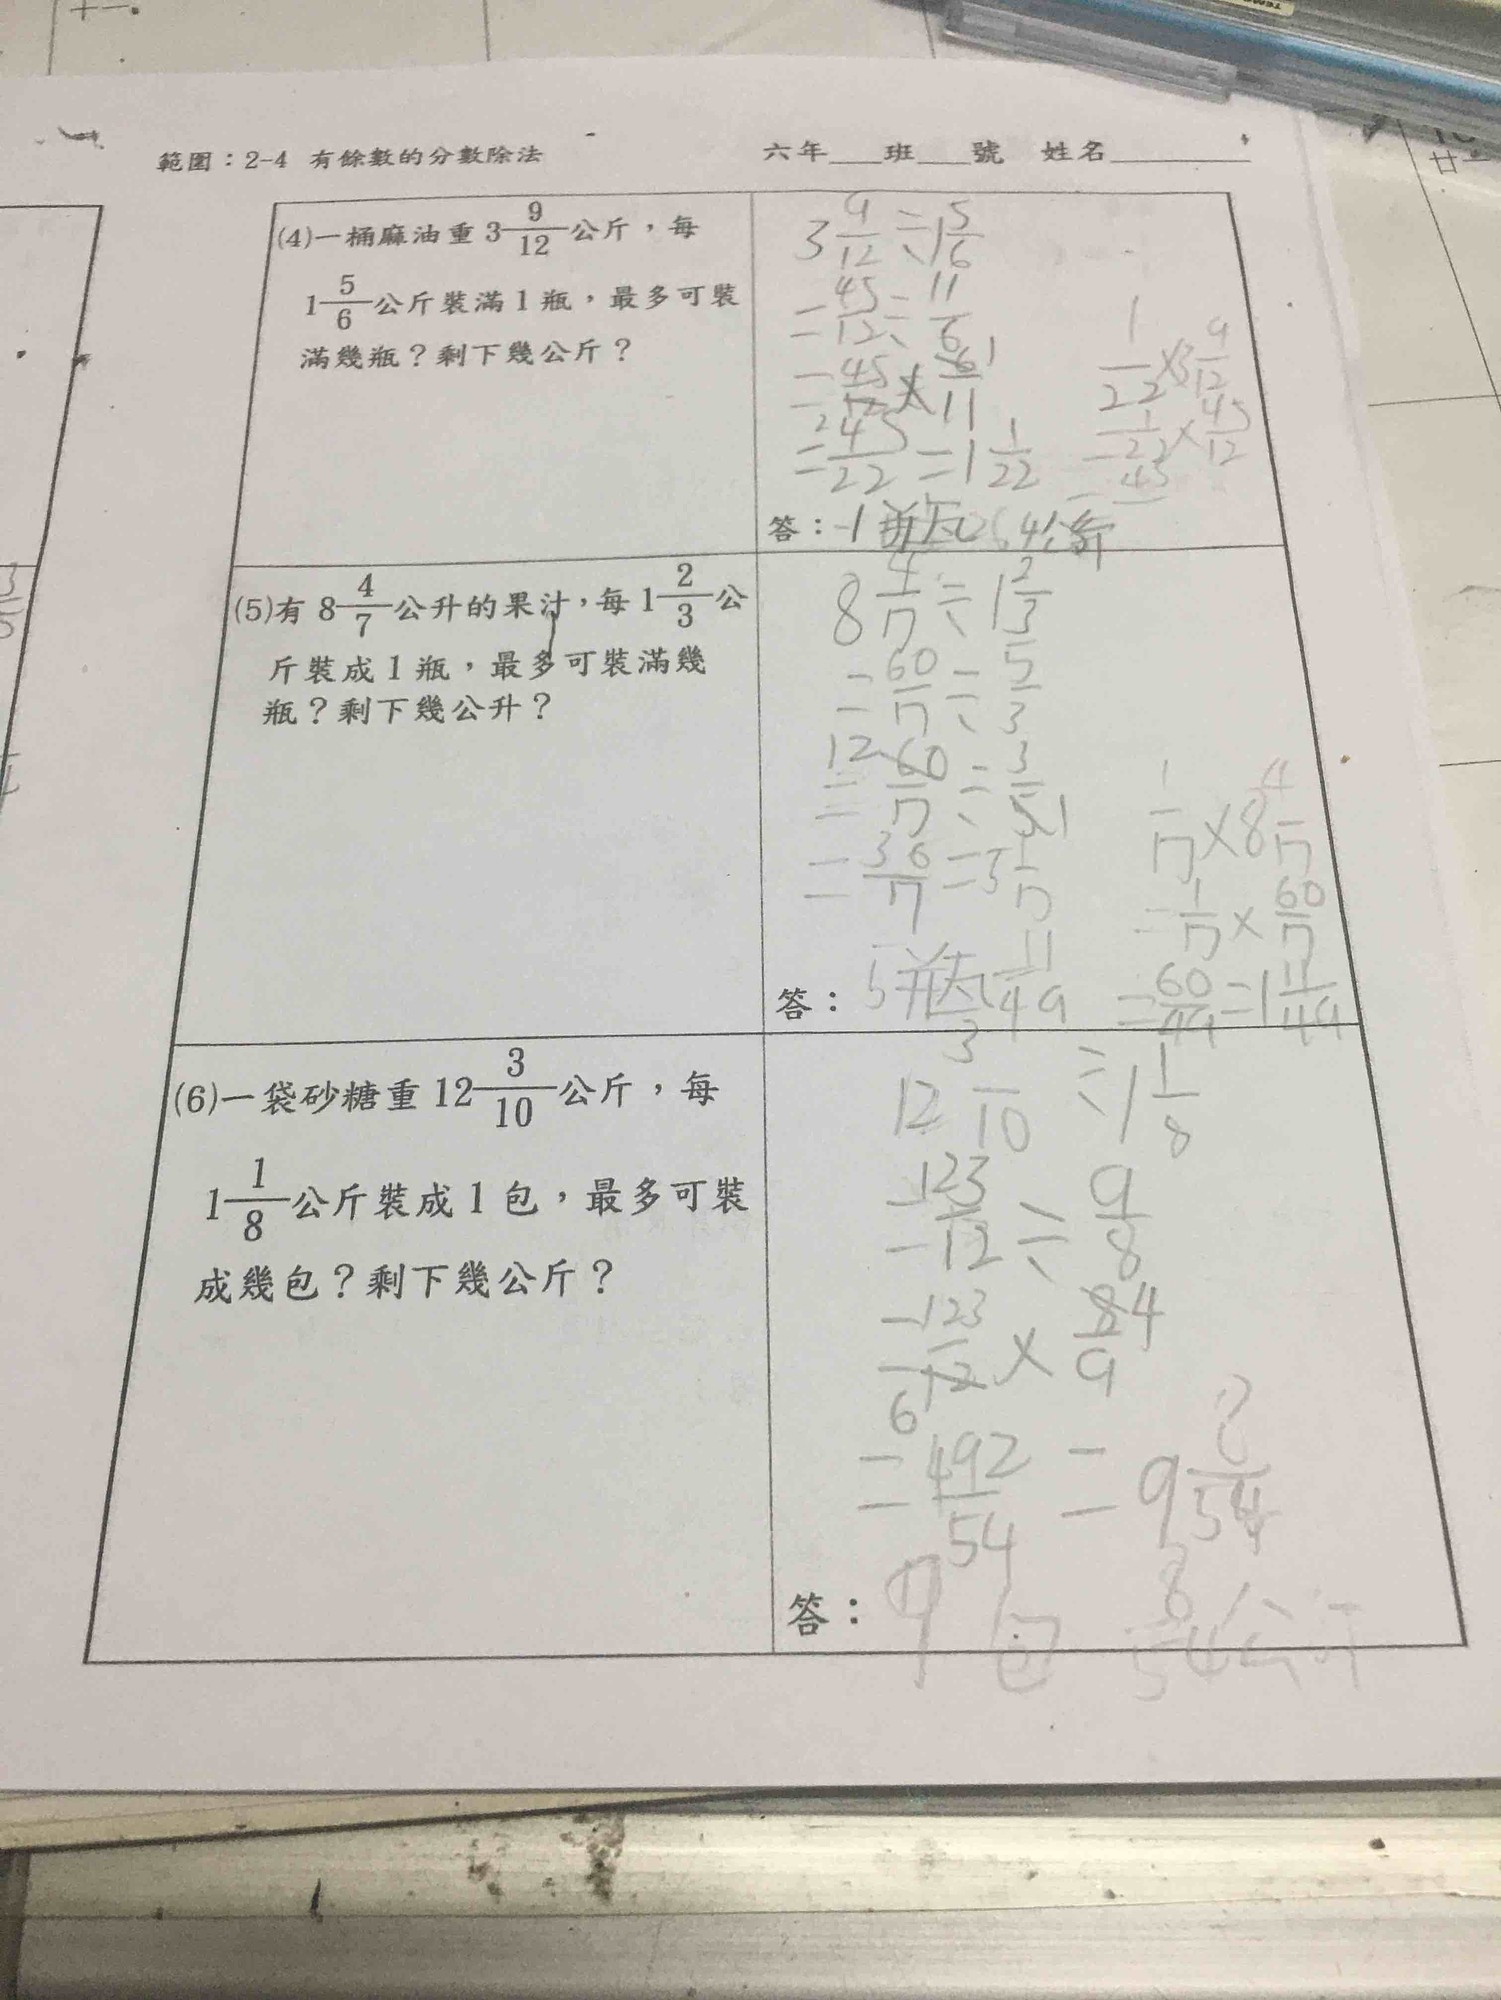 範圍：2-4 有餘數的分數除法
六年___班___號 姓名________
(4)一桶麻油重 3 9/12 公斤，每
1 5/6 公斤裝滿 1 瓶，最多可裝
滿幾瓶？剩下幾公斤？
3 9/12 ÷ 1 5/6
= 45/12 ÷ 11/6
= 45/12 × 6/11
2 1
= 45/22 = 1 1/22
1/22 × 3 9/12
= 1/22 × 45/12
= 45
答：1瓶
(5)有 8 4/7 公升的果汁，每 1 2/3 公
斤裝成 1 瓶，最多可裝滿幾
瓶？剩下幾公升？
8 4/7 ÷ 1 2/3
= 60/7 ÷ 5/3
12
= 60/7 ÷ 3/5
1
= 36/7 = 5 1/7
1/7 × 8 4/7
= 1/7 × 60/7
= 60/49 = 1 11/49
答：5瓶 11/49
(6)一袋砂糖重 12 3/10 公斤，每
1 1/8 公斤裝成 1 包，最多可裝
成幾包？剩下幾公斤？
12 3/10 ÷ 1 1/8
= 123/12 ÷ 9/8
= 123/12 × 8/9
6 4
= 492/54 = 9 /54
答：9包 8/54公斤